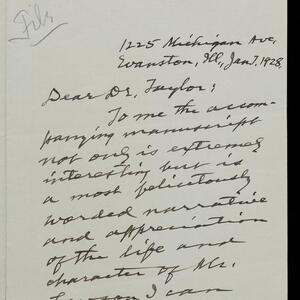 File
1225 Michigan Ave,
Evanston, Ill, Jan 7. 1928.
Dear Dr. Taylor:
To me the accom-
panying manuscript
not only is extremely
interesting but is
a most felicitously
worded narrative
and appreciation
of the life and
character of Mr.
I can